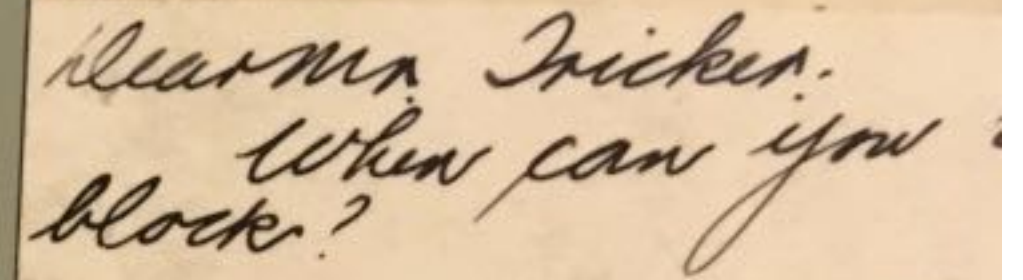 Dear Mr. Tricker.
When can you
block?